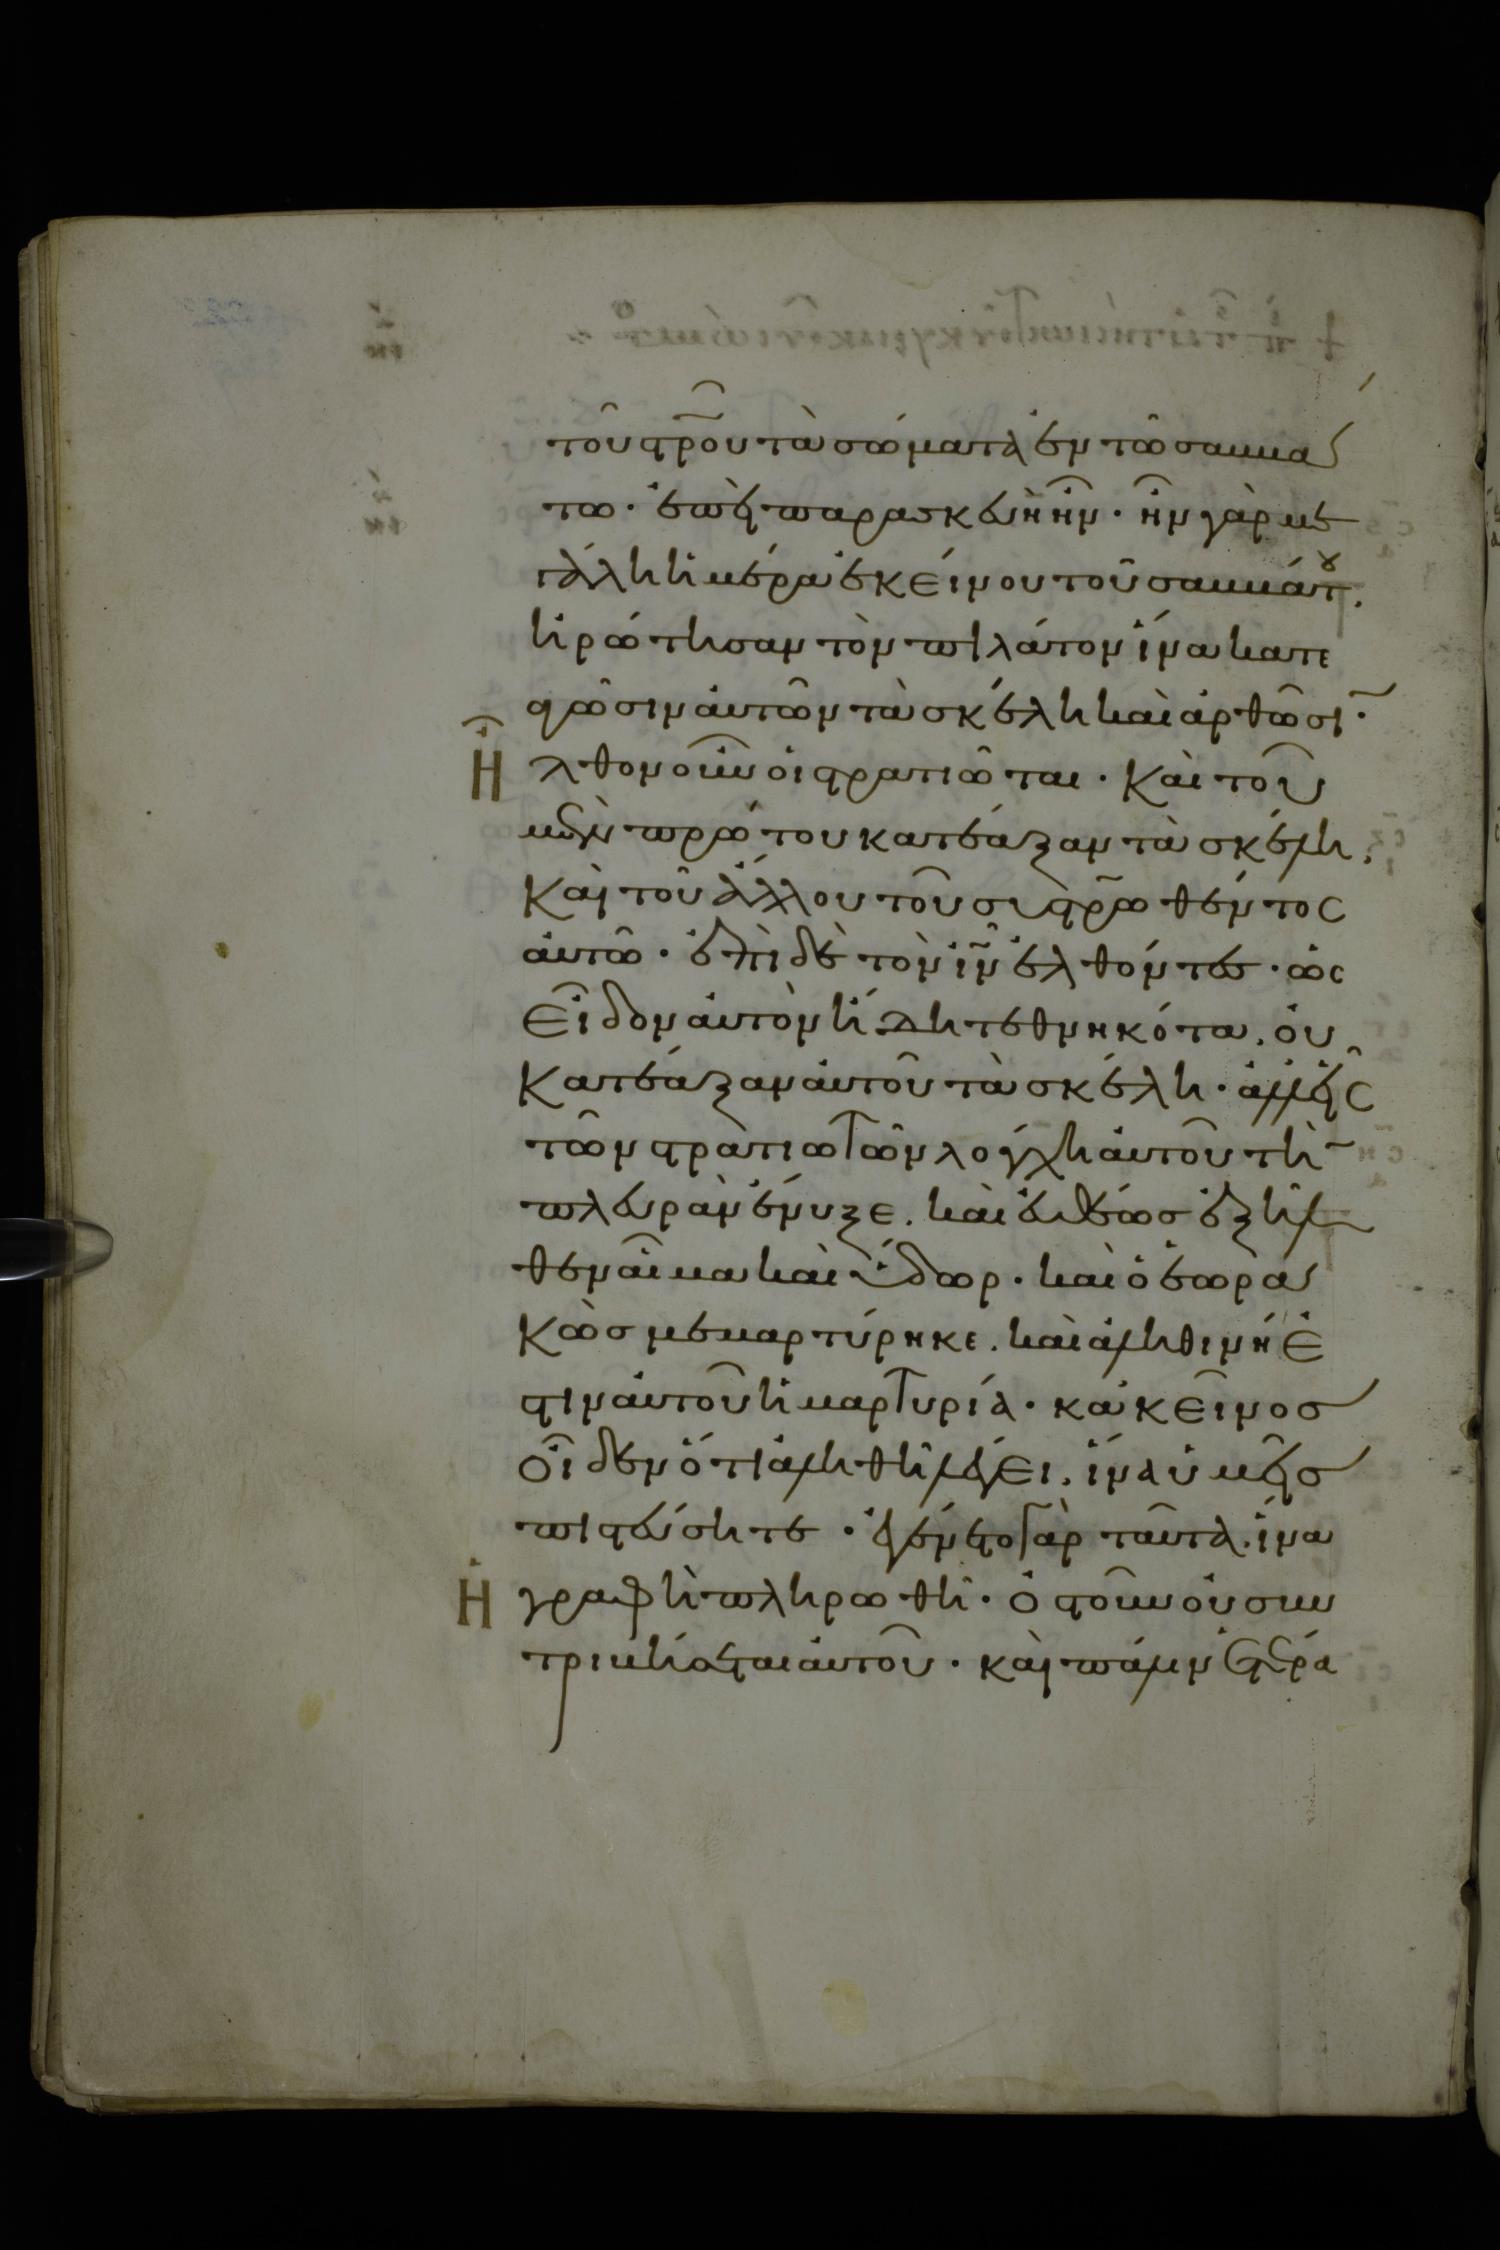 τοῦ στ̅ρ̅ου τὰ σώματα ἐν τῶ σαββά
τω· ἐπεὶ παρασκευὴ ἦν· ἦν γὰρ με
γάλη ἡ ἡμέρα ἐκείνου τοῦ σαββάτου.
ἠρώτησαν τὸν πιλάτον ἵνα κατε
αγῶσιν αὐτῶν τὰ σκέλη καὶ ἀρθῶσι̅·
Ἦλθον οὖν οἱ στρατιῶται· Καὶ τοῦ
μὲν πρώτου κατέαξαν τὰ σκέλη.
Καὶ τοῦ ἄλλου τοῦ συστ̅ρ̅ωθέντος
αὐτῶ· ἐπὶ δὲ τὸν ι̅ν̅ ἐλθόντες· ὡς
εἶδον αὐτὸν ἤδη τεθνηκότα. οὐ
Κατέαξαν αὐτοῦ τὰ σκέλη· ἀλλ' εἷς
τῶν στρατιωτῶν λόγχη αὐτοῦ τὴ̅
πλευρὰν ἔνυξε. καὶ εὐθέως ἐξῆλ
θεν αἷμα καὶ ὕδωρ· καὶ ὁ ἑωρα
Κὼς μεμαρτύρηκε. καὶ ἀληθινή ἐ
στιν αὐτοῦ ἡ μαρτυρία· κἀκεῖνος
οἶδεν ὅτι ἀληθῆ λέγει. ἵνα ὑμεῖς
πιστεύσητε· ἐγένετο γὰρ ταῦτα. ἵνα
Ἡ γραφὴ πληρωθῆ· ὀστοῦν οὐ συν
τριβήσεται αὐτοῦ· καὶ πάλιν ἑτέρα